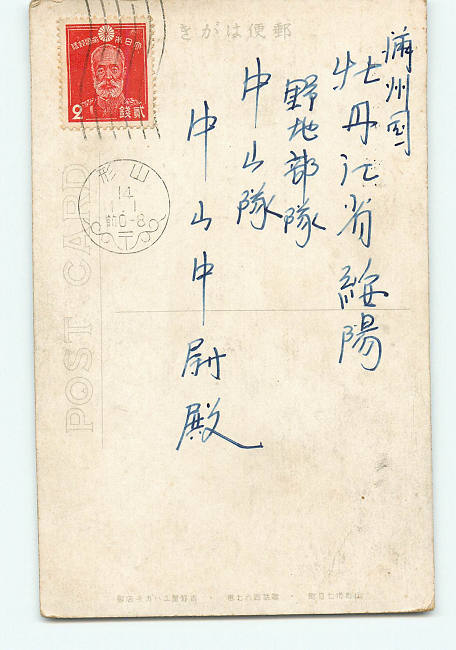 郵便はがき
満州国
牡丹江省綏陽
野地部隊
中山隊
中山中尉殿
大日本帝国郵便
2 銭 貳
山形
14
1.1
前0-8
POST CARD